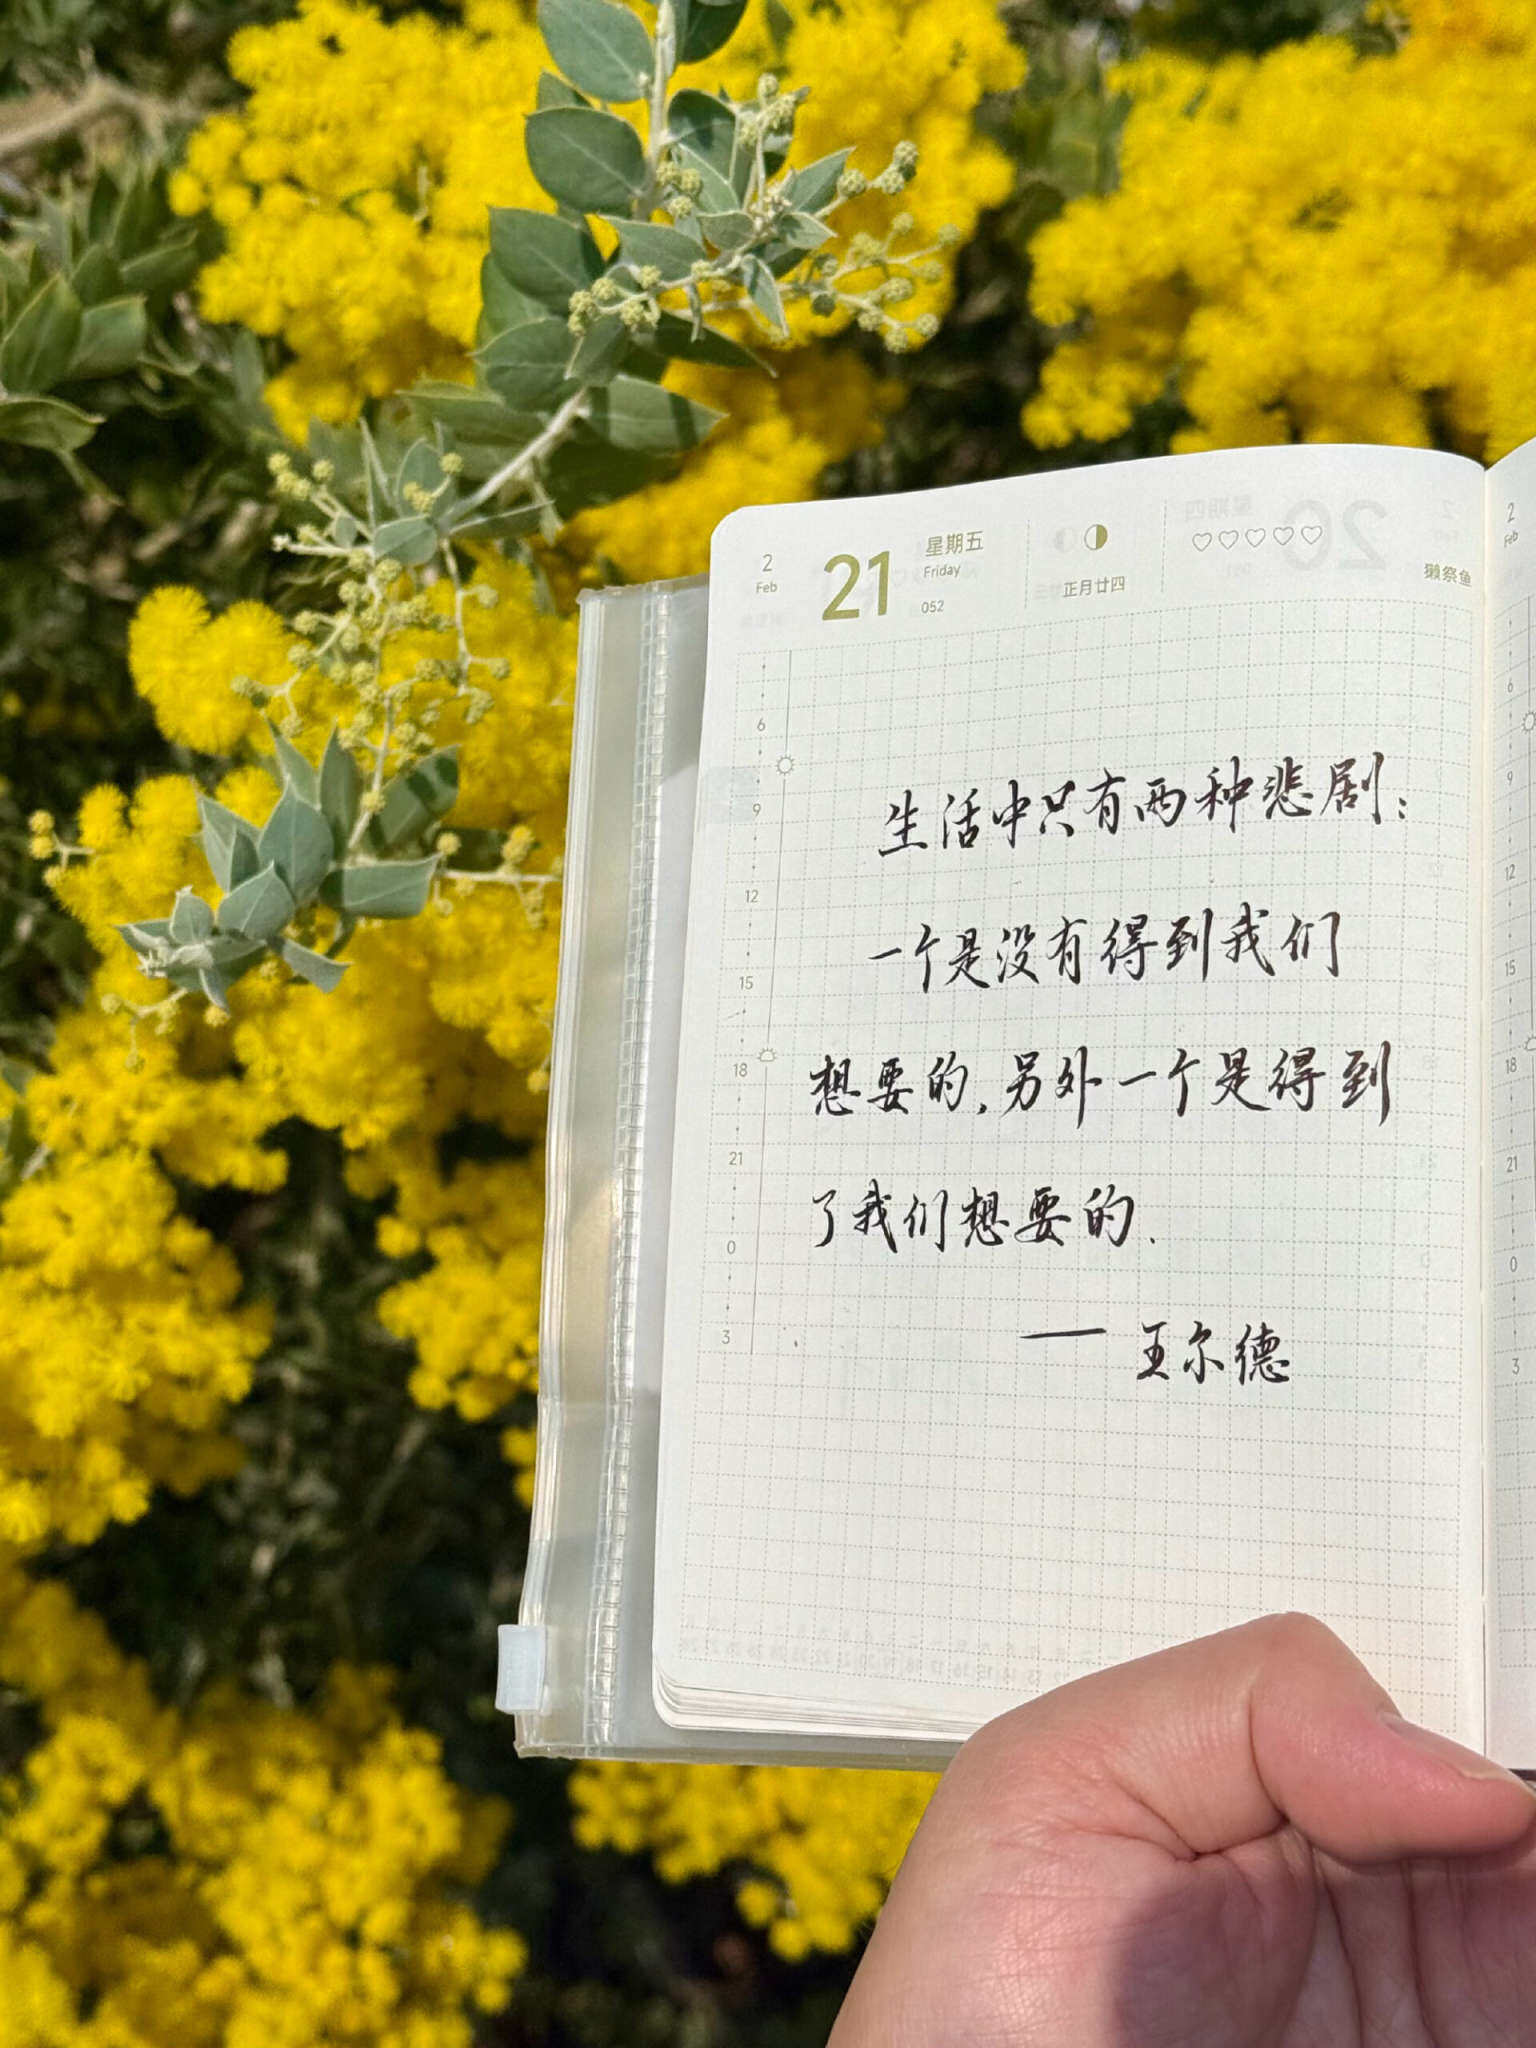 2
Feb
21
星期五
Friday
052
正月廿四
獭祭鱼
6
9
12
15
18
21
0
3
生活中只有两种悲剧：
一个是没有得到我们
想要的,另外一个是得到
了我们想要的.
—— 王尔德
2
Feb
6
9
12
15
18
21
0
3